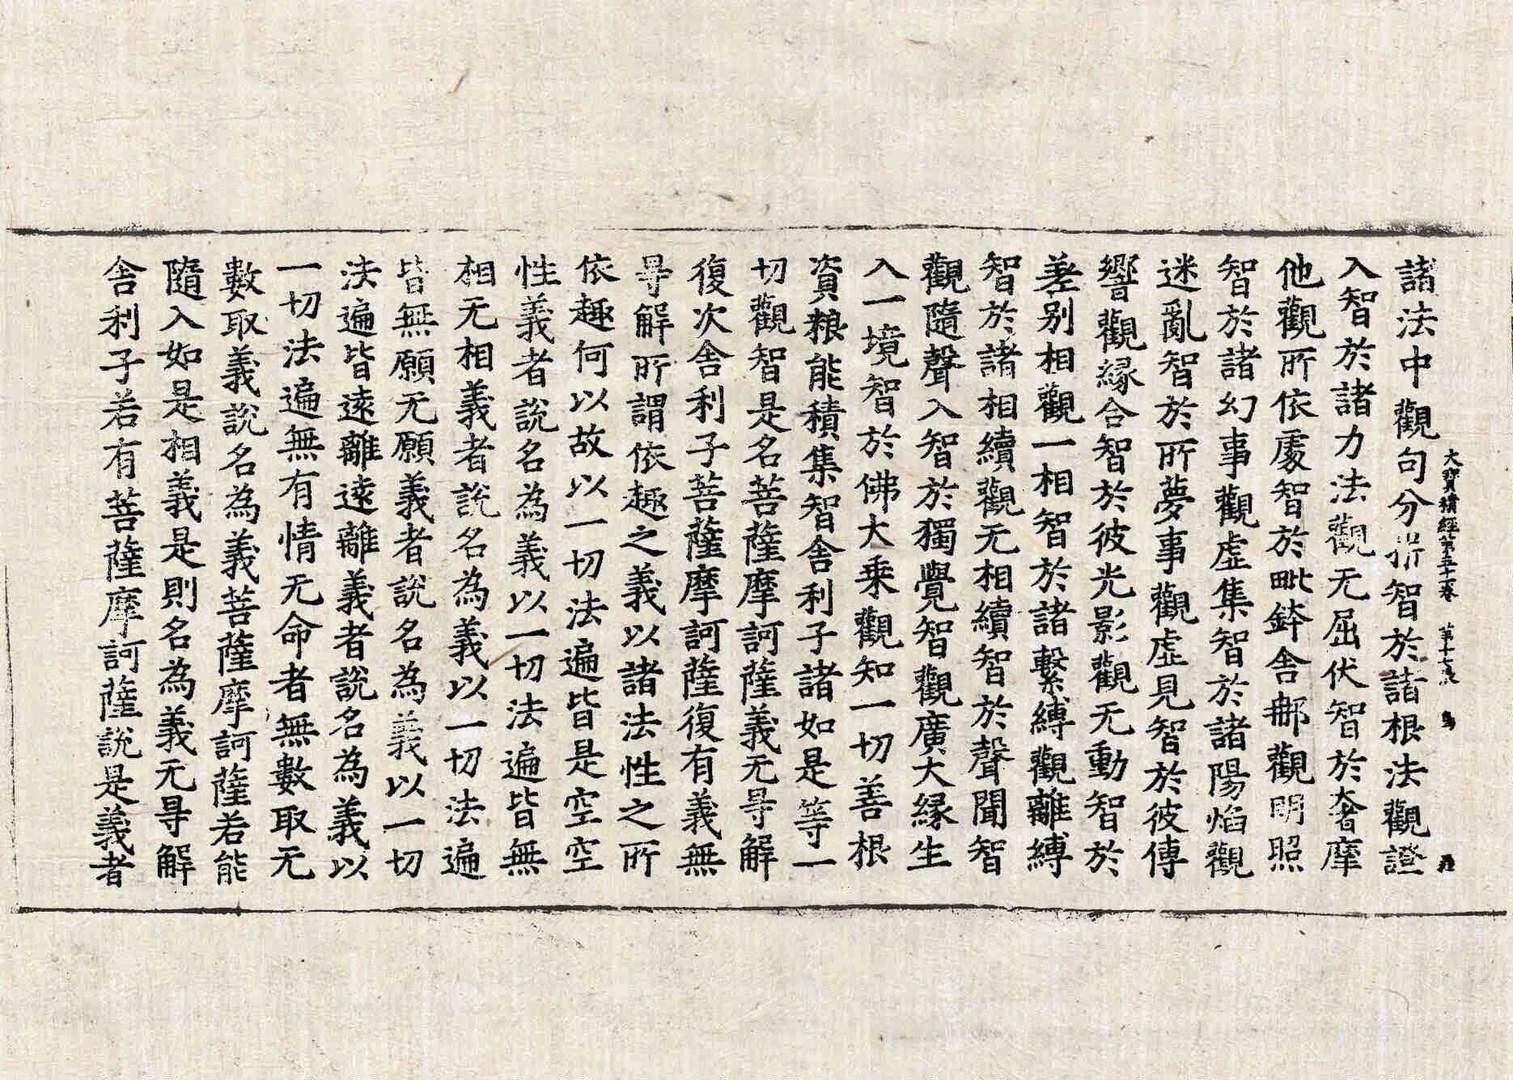 大寶積經第五十卷 第十七張 鳥
諸法中觀句分析智於諸根法觀證
入智於諸力法觀无屈伏智於奢摩
他觀所依處智於毗鉢舍那觀明照
智於諸幻事觀虛集智於諸陽焰觀
迷亂智於所夢事觀虛見智於彼傳
響觀緣合智於彼光影觀无動智於
差別相觀一相智於諸繫縛觀離縛
智於諸相續觀无相續智於聲聞智
觀隨聲入智於獨覺智觀廣大緣生
入一境智於佛大乘觀知一切善根
資粮能積集智舍利子諸如是等一
切觀智是名菩薩摩訶薩義无㝵解
復次舍利子菩薩摩訶薩復有義無
㝵解所謂依趣之義以諸法性之所
依趣何以故以一切法遍皆是空空
性義者說名為義以一切法遍皆無
相无相義者說名為義以一切法遍
皆無願无願義者說名為義以一切
法遍皆遠離遠離義者說名為義以
一切法遍無有情无命者無數取无
數取義說名為義菩薩摩訶薩若能
隨入如是相義是則名為義无㝵解
舍利子若有菩薩摩訶薩說是義者